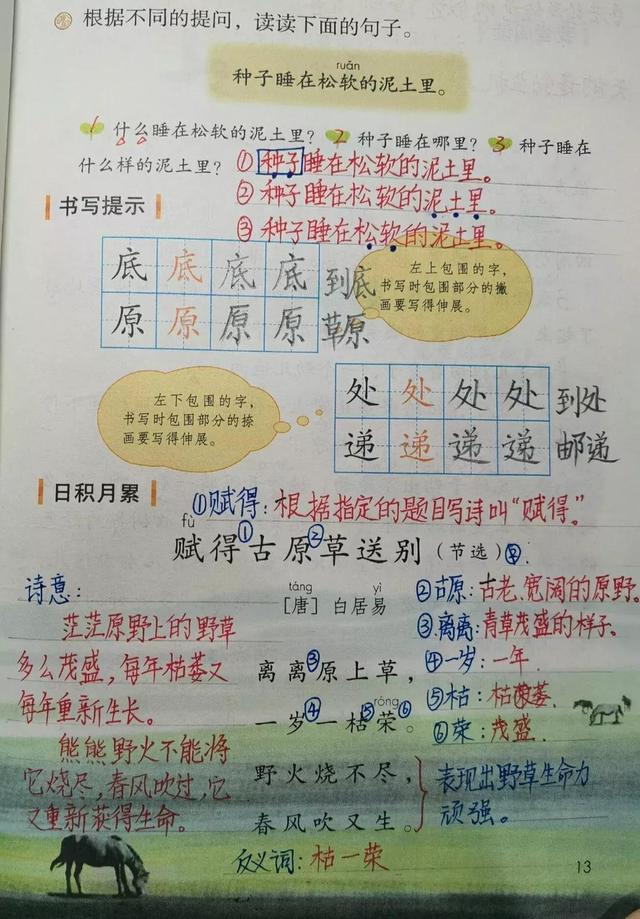 根据不同的提问，读读下面的句子。
ruǎn
种子睡在松软的泥土里。
1 什么睡在松软的泥土里？ 2 种子睡在哪里？ 3 种子睡在
什么样的泥土里？ ①种子睡在松软的泥土里。
②种子睡在松软的泥土里。
书写提示
③种子睡在松软的泥土里。
底 底 底 底 到底
原 原 原 原 草原
左上包围的字，
书写时包围部分的撇
画要写得伸展。
左下包围的字，
书写时包围部分的捺
画要写得伸展。
处 处 处 处 到处
递 递 递 递 邮递
日积月累
①赋得：根据指定的题目写诗叫“赋得。”
fù
赋得①古原②草送别（节选）
诗意：
茫茫原野上的野草
多么茂盛，每年枯萎又
每年重新生长。
熊熊野火不能将
它烧尽，春风吹过，它
又重新获得生命。
táng yì
［唐］白居易
离离③原上草，
róng
一岁④一枯⑤荣⑥。
野火烧不尽，
春风吹又生。
②古原：古老、宽阔的原野。
③离离：青草茂盛的样子。
④一岁：一年.
⑤枯：枯萎.
⑥荣：茂盛.
表现出野草生命力
顽强。
反义词：枯—荣
13